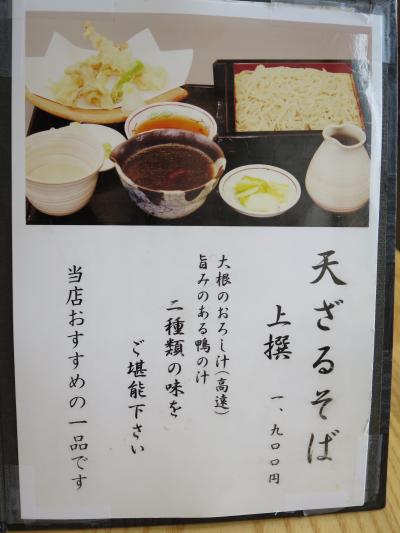 天ざるそば
上撰
一、九〇〇円
大根のおろし汁(高遠)
旨みのある鴨の汁
二種類の味を
ご堪能下さい
当店おすすめの一品です